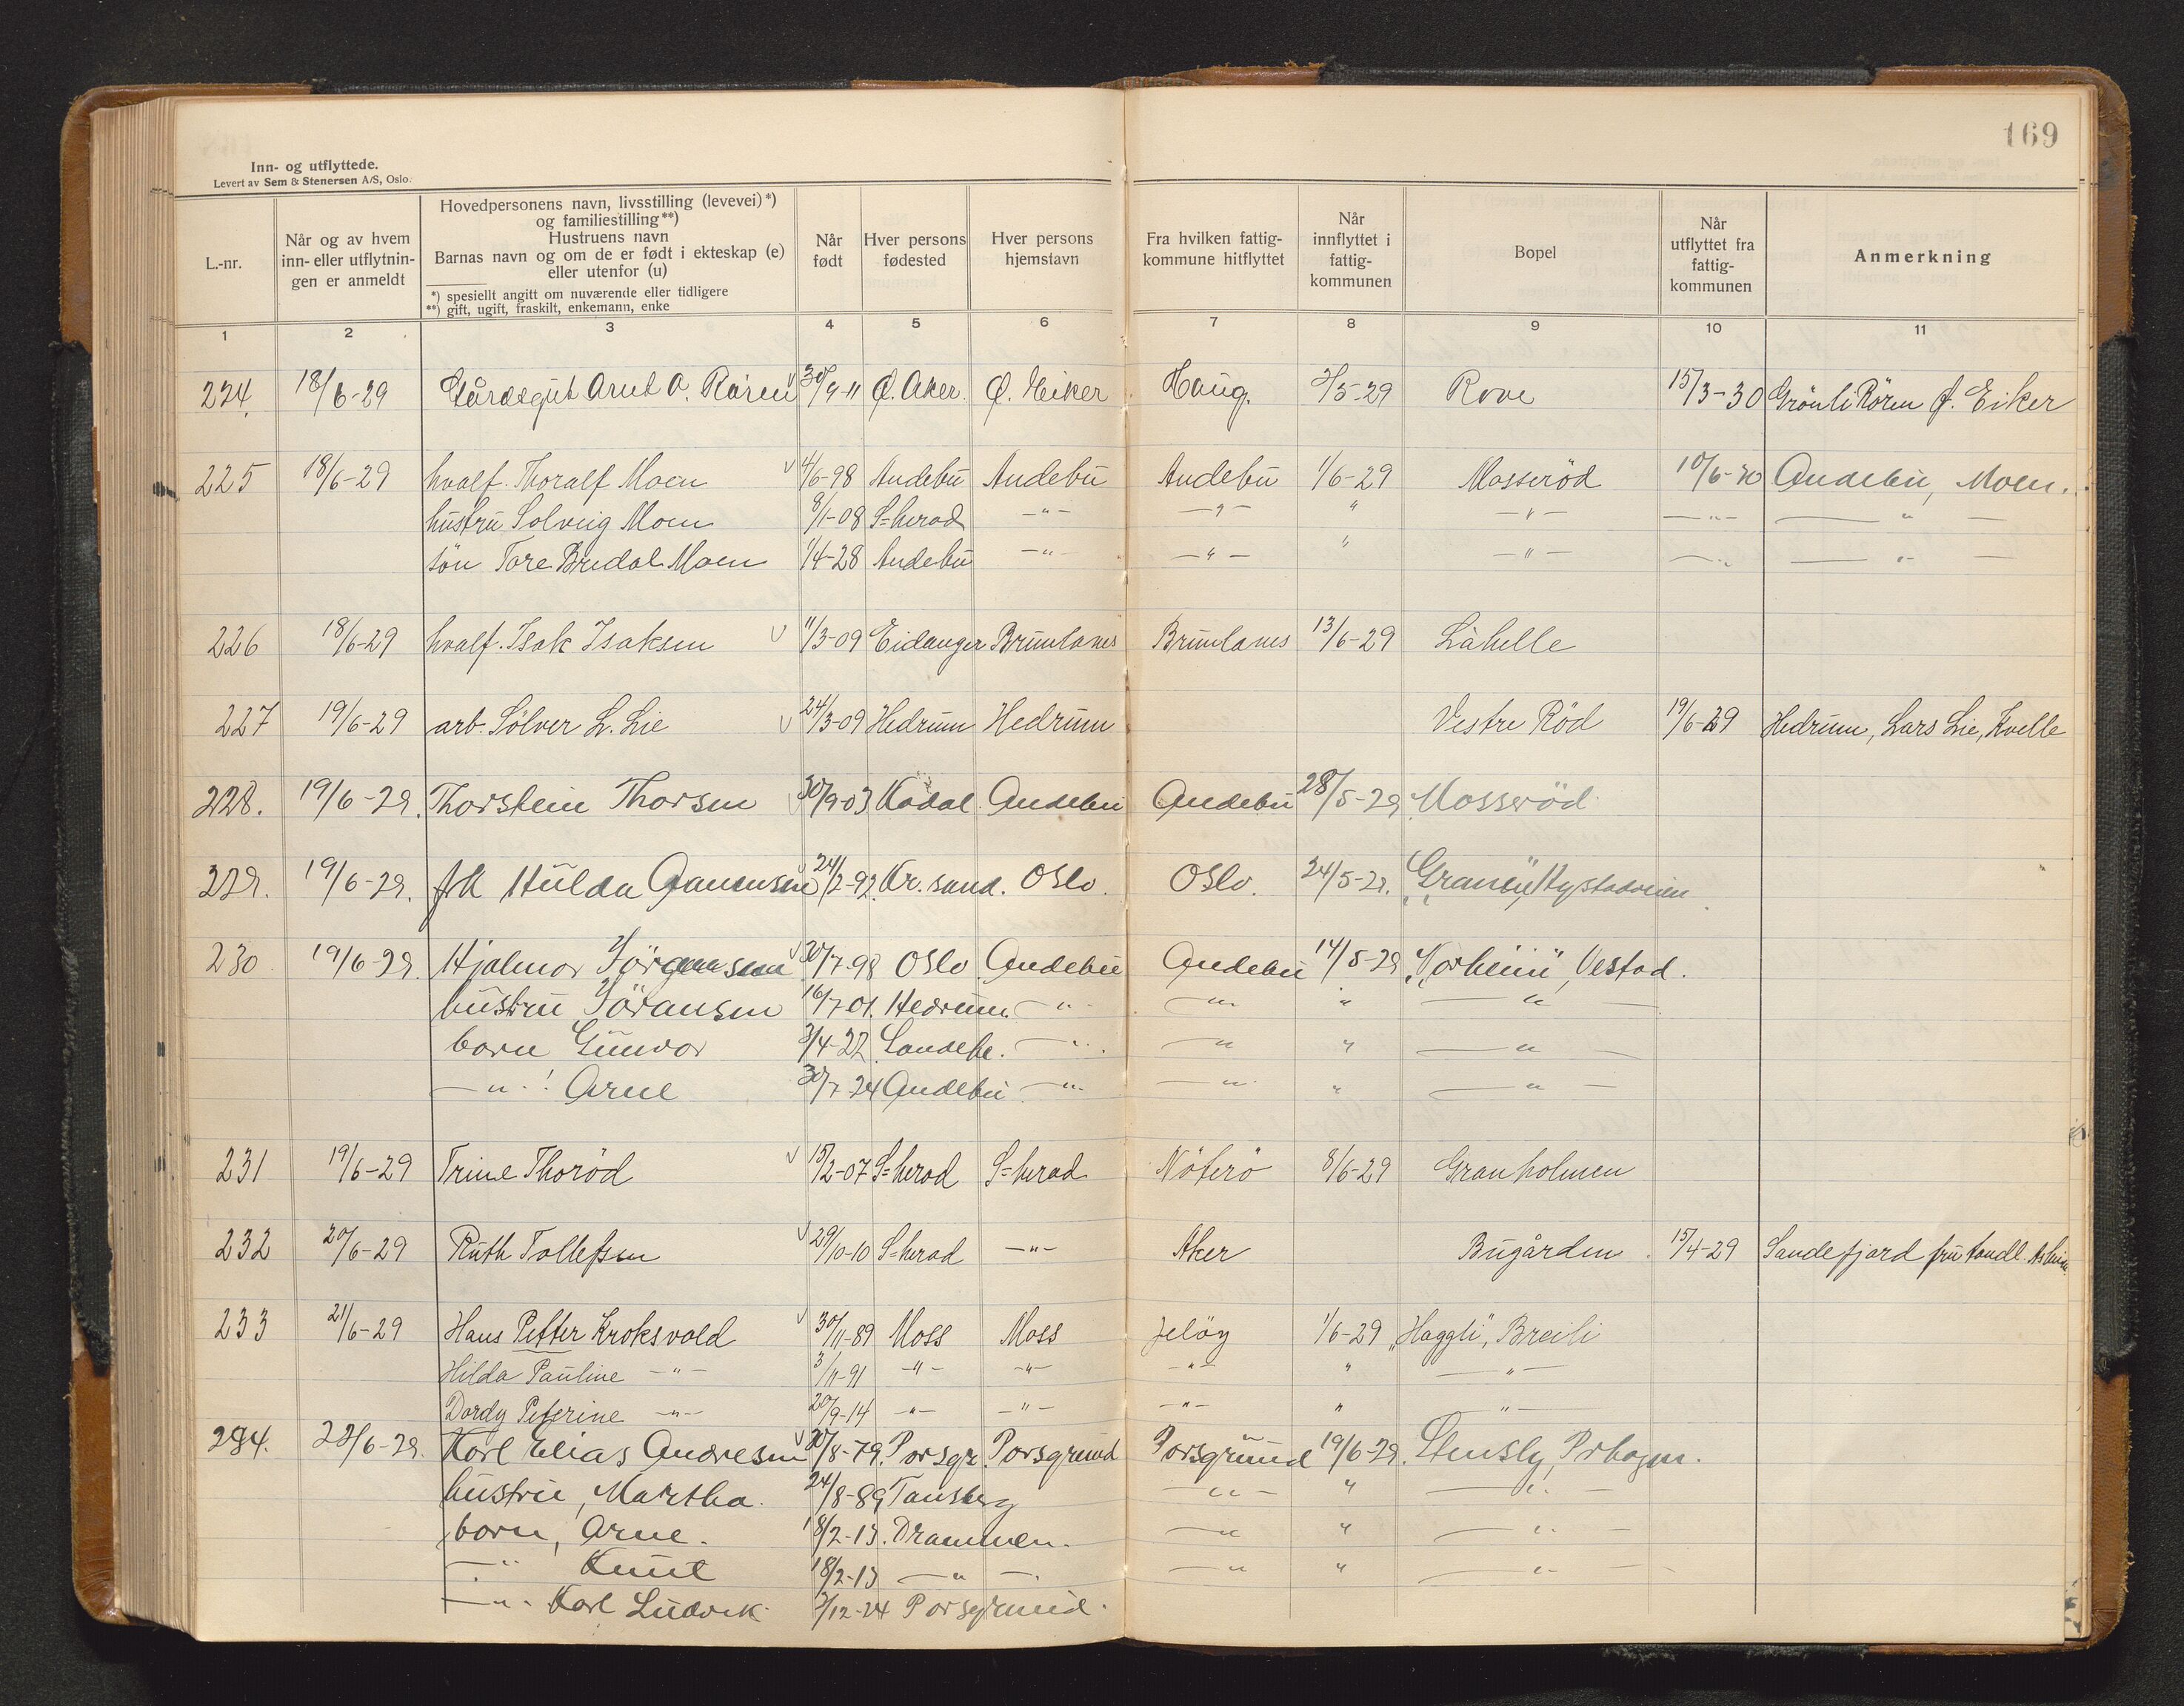 169
Inn- og utflyttede.
Levert av Sem & Stenersen A/S, Oslo.
L.-nr.
Når og av hvem inn- eller utflytnin-gen er anmeldt
Hovedpersonens navn, livsstilling (levevei)*) og familiestilling**)
Hustruens navn
Barnas navn og om de er født i ekteskap (e) eller utenfor (u)
*) spesiellt angitt om nuværende eller tidligere
**) gift, ugift, fraskilt, enkemann, enke
Når født
Hver persons fødested
Hver persons hjemstavn
Fra hvilken fattig-kommune hitflyttet
Når innflyttet i fattig-kommunen
Bopel
Når utflyttet fra fattig-kommunen
Anmerkning
1 2 3 4 5 6 7 8 9 10 11
224. 18/6-29 Gårdsgut Arnt O. Rören 30/9-11 Ø. Aker Ø. Eiker Haug. 2/5-29 Rove 15/3-30 Grönli Rören Ø. Eiker
225 18/6-29 hvalf. Thoralf Moen 4/6-98 Andebu Andebu Andebu 1/6-29 Mosserød 10/6-30 Andebu, Moen.
hustru Solveig Moen 8/1-08 S=herad -"- -"- " -"- -"- -"-
sön Tore Bredal Moen 1/4-28 Andebu -"- -"- " -"- -"- -"-
226 18/6-29 hvalf. Isak Isaksen 11/3-09 Eidanger Brunlanes Brunlanes 13/6-29 Låhelle
227 19/6-29 arb. Sölver L. Lie 24/3-09 Hedrum Hedrum Vestre Röd 19/6-29 Hedrum, Lars Lie, Kvelle
228. 19/6-29. Thorstein Thorsen 30/9-03 Kodal Andebu Andebu 28/5-29 Mosseröd
229. 19/6-29. frk Hulda 24/2-92. Kr.sand. Oslo. Oslo. 24/5-29. Nystadveien
230 19/6-29. Hjalmar Jörgensen 30/7-98 Oslo Andebu Andebu 14/5-29 "Norheim", Vestad.
hustru Jöransen 16/7-01. Hedrum. -"- -"- " -"-
barn Gunvor 3/4-22 Sandefj. -"- -"- " -"-
-"- Arne 30/7-24 Andebu -"- -"- " -"-
231 19/6-29 Trine Thoröd 15/2-07 S=herad S=herad Nöterö 8/6-29 Granholmen
232 20/6-29 Ruth Tollefsen 29/10-10 S=herad -"- Aker Bugården 15/4-29 Sandefjord fru tandl.
233 21/6-29 Hans Petter Kroksvold 30/11-89 Moss Moss Jelöy 1/6-29 "Haggli", Breili
Hilda Pauline -"- 3/11-91 -"- -"- -"- " -"-
Dordy Peterine -"- 20/9-14 -"- -"- -"- " -"-
234. 22/6-29. Karl Elias Andresen 30/8-79. Porsgr. Porsgrund Porsgrund 19/6-29.
hustru, Martha. 24/8-89 Tønsberg -"- " -"-
barn, Arne. 18/2-13. Drammen. -"- " -"-
-"- Knut 18/2-13 -"- -"- " -"-
-"- Karl Ludvik 2/12-24 Porsgrund.